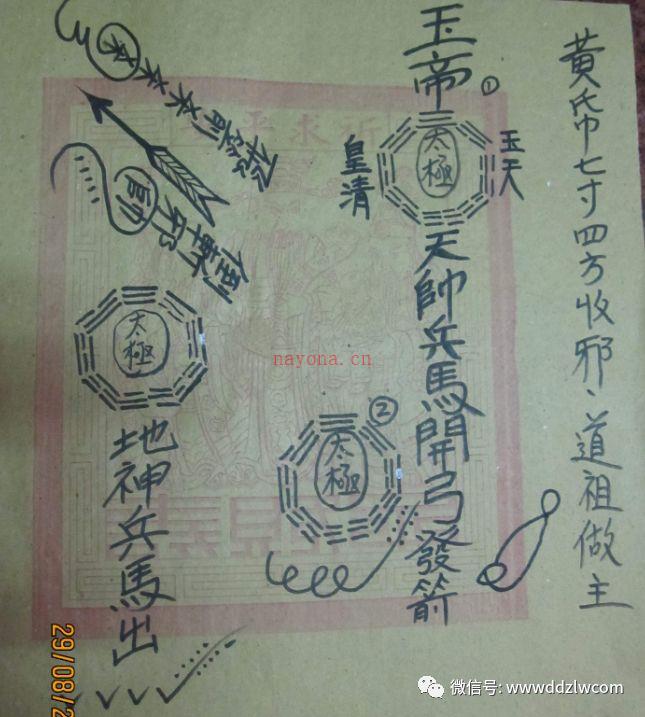 黄巾七寸四方收邪、道祖做主
玉帝
①
玉天
太極
皇清
天帥兵馬開弓發箭
②
太極
太極
地神兵馬出
祈求平
nayona.cn
29/08/2
微信号: wwwddzlwcom